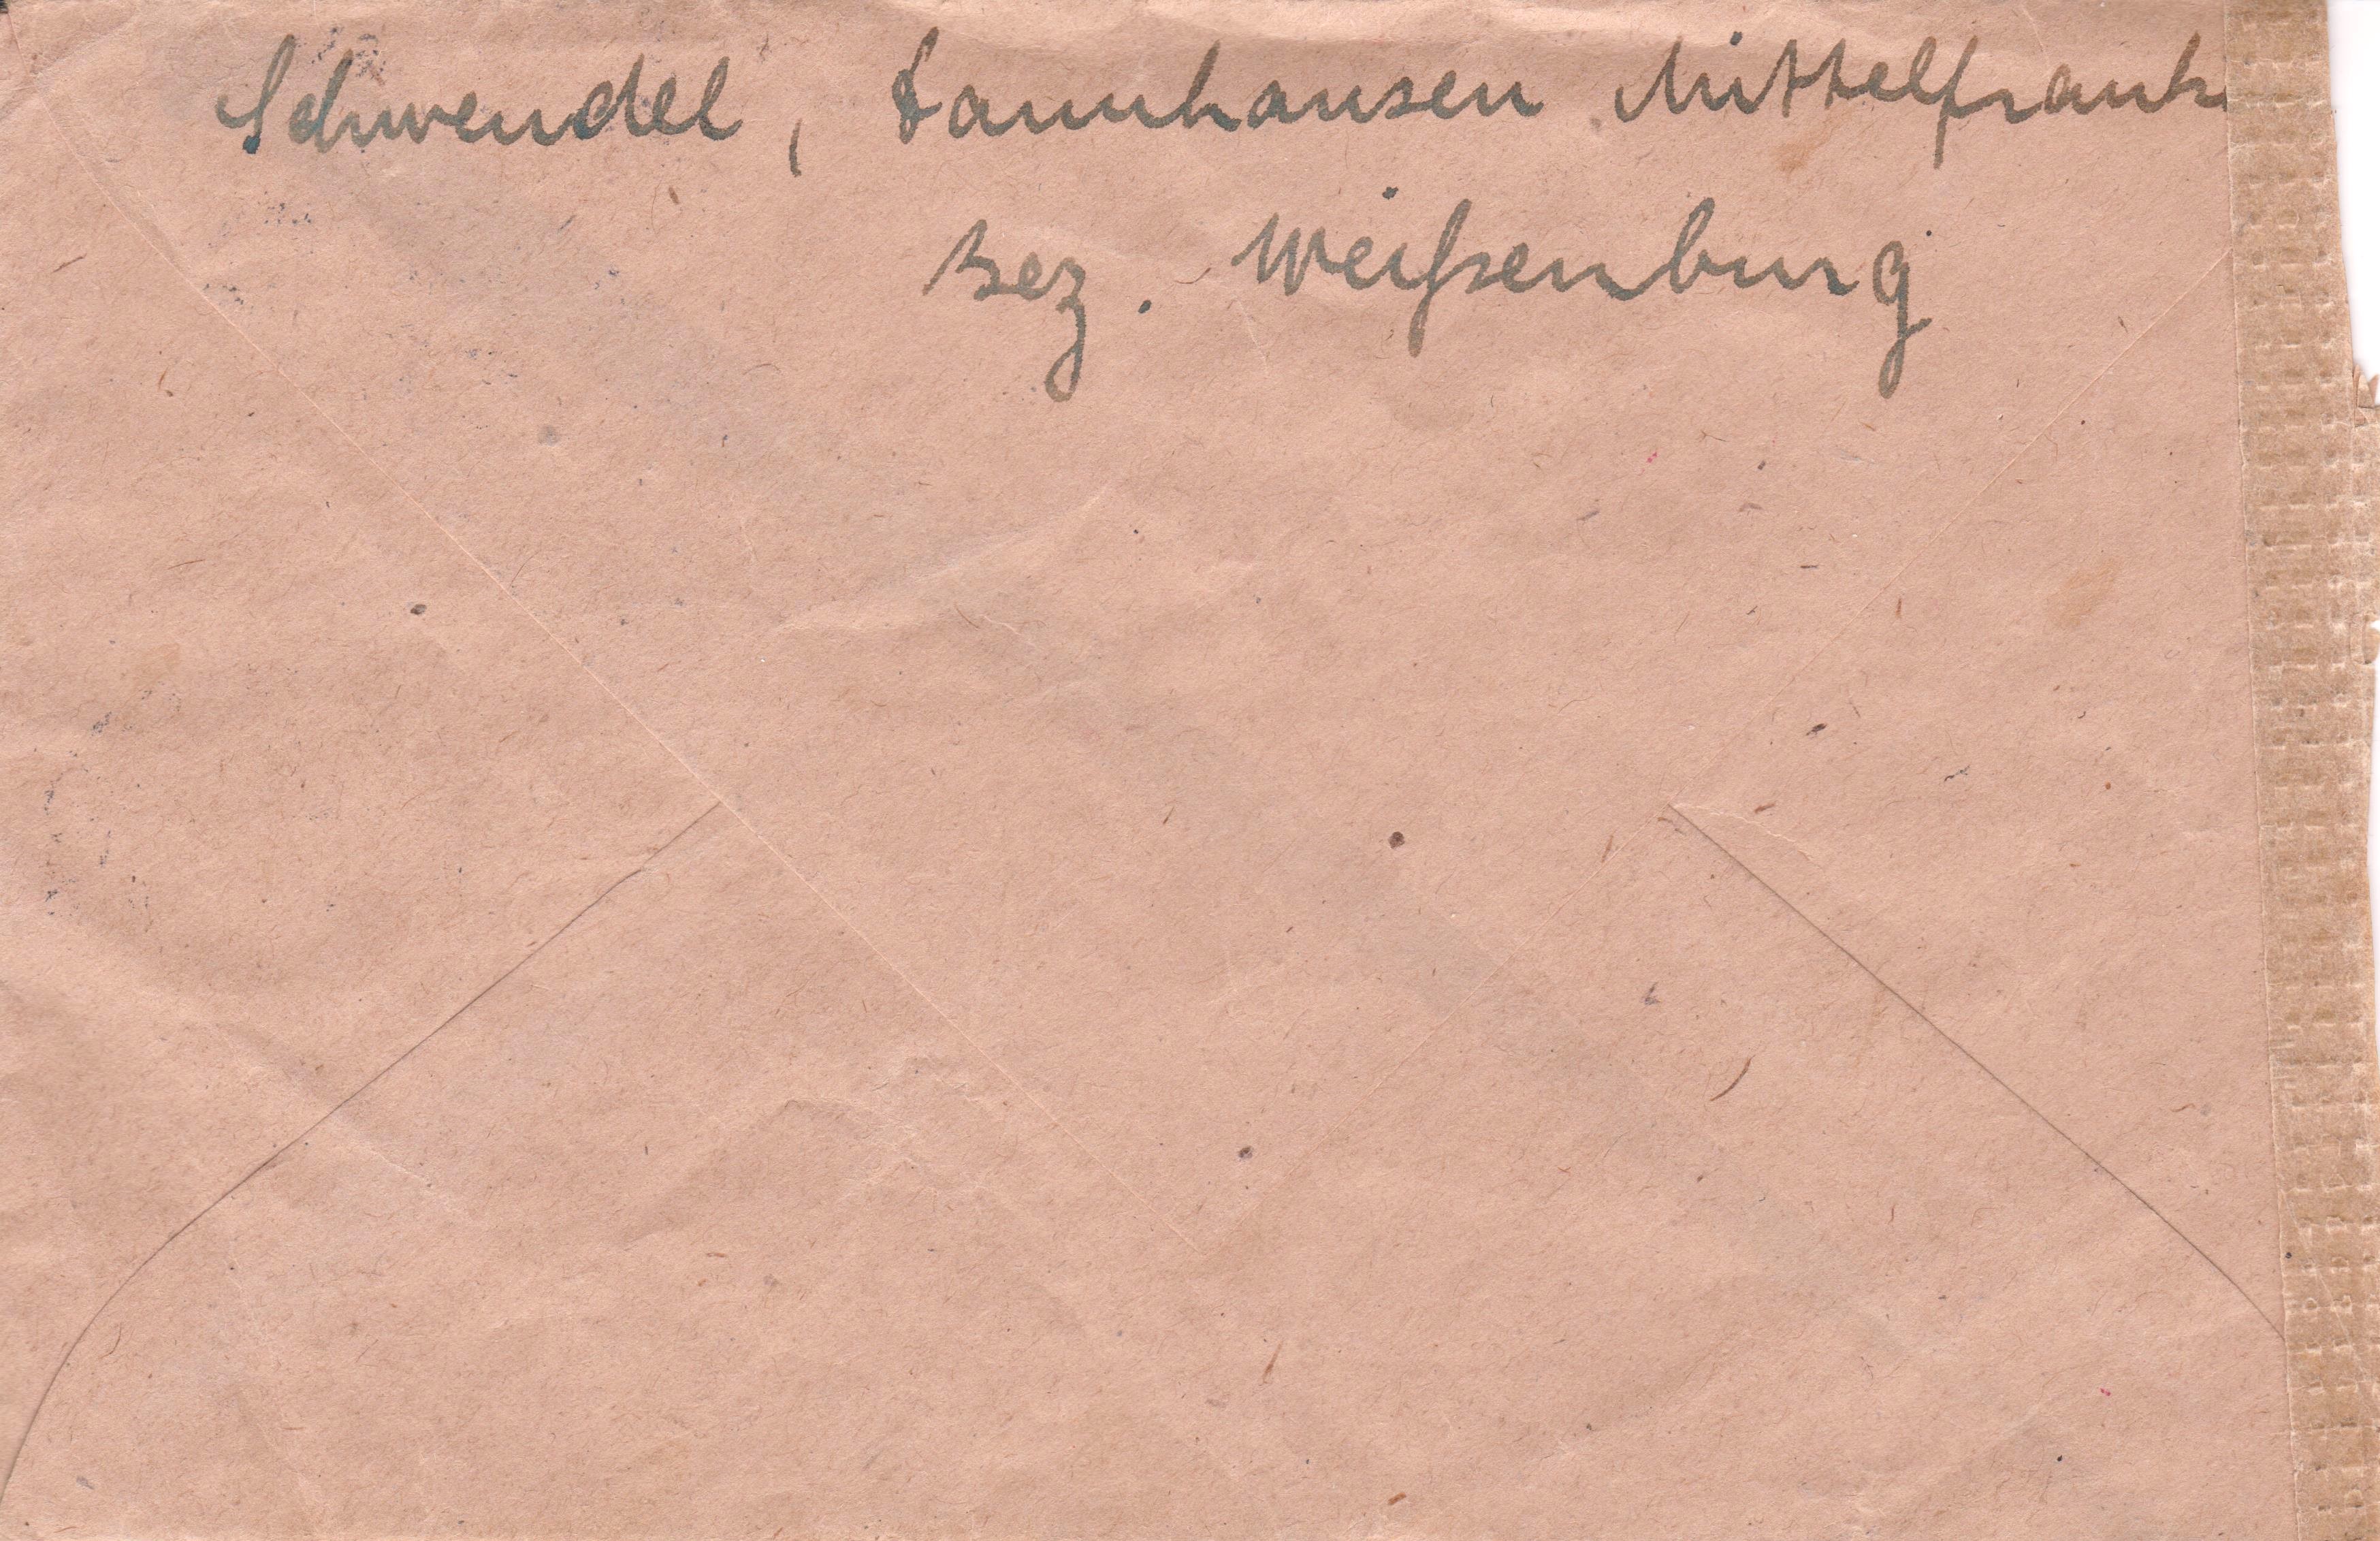 Schwendel, Tannhausen Mittelfrank.
Bez. Weißenburg